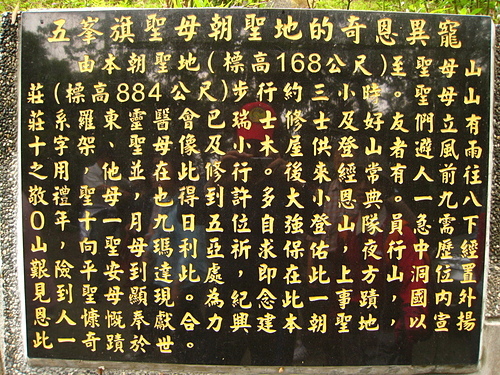 五峯旗聖母朝聖地的奇恩異寵
由本朝聖地(標高168公尺)至聖母山
莊(標高884公尺)步行約三小時。聖母山
莊系羅東靈醫會已瑞士修士及好友們立有
十字架、聖母像及小木屋供登山者避風雨
之用。他並在此修行。後來經常有人前往
敬禮聖母,也得到許多大小恩典。一九八
0年十一月九日五位自強登山隊員急需下
山,向聖母瑪利亞祈求保佑,夜行中歷經
艱險平安到達此處,即在此上方山洞位置
見到聖母顯現。為紀念此一事蹟,國內外
恩人慷慨奉獻合力興建本朝聖地,以宣揚
此一奇蹟於世。